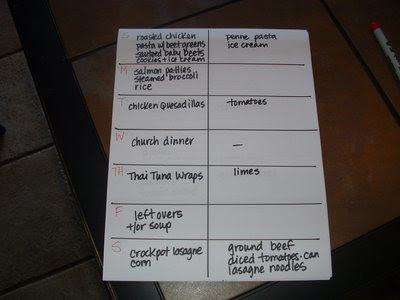 S roasted chicken penne pasta
pasta w/ beet greens ice cream
sauteed baby beets
cookies + ice cream
M salmon patties
steamed broccoli
rice
T chicken Quesadillas tomatoes
W church dinner —
TH Thai Tuna Wraps limes
F leftovers
+/or soup
S crockpot lasagne ground beef
corn diced tomatoes-can
lasagne noodles